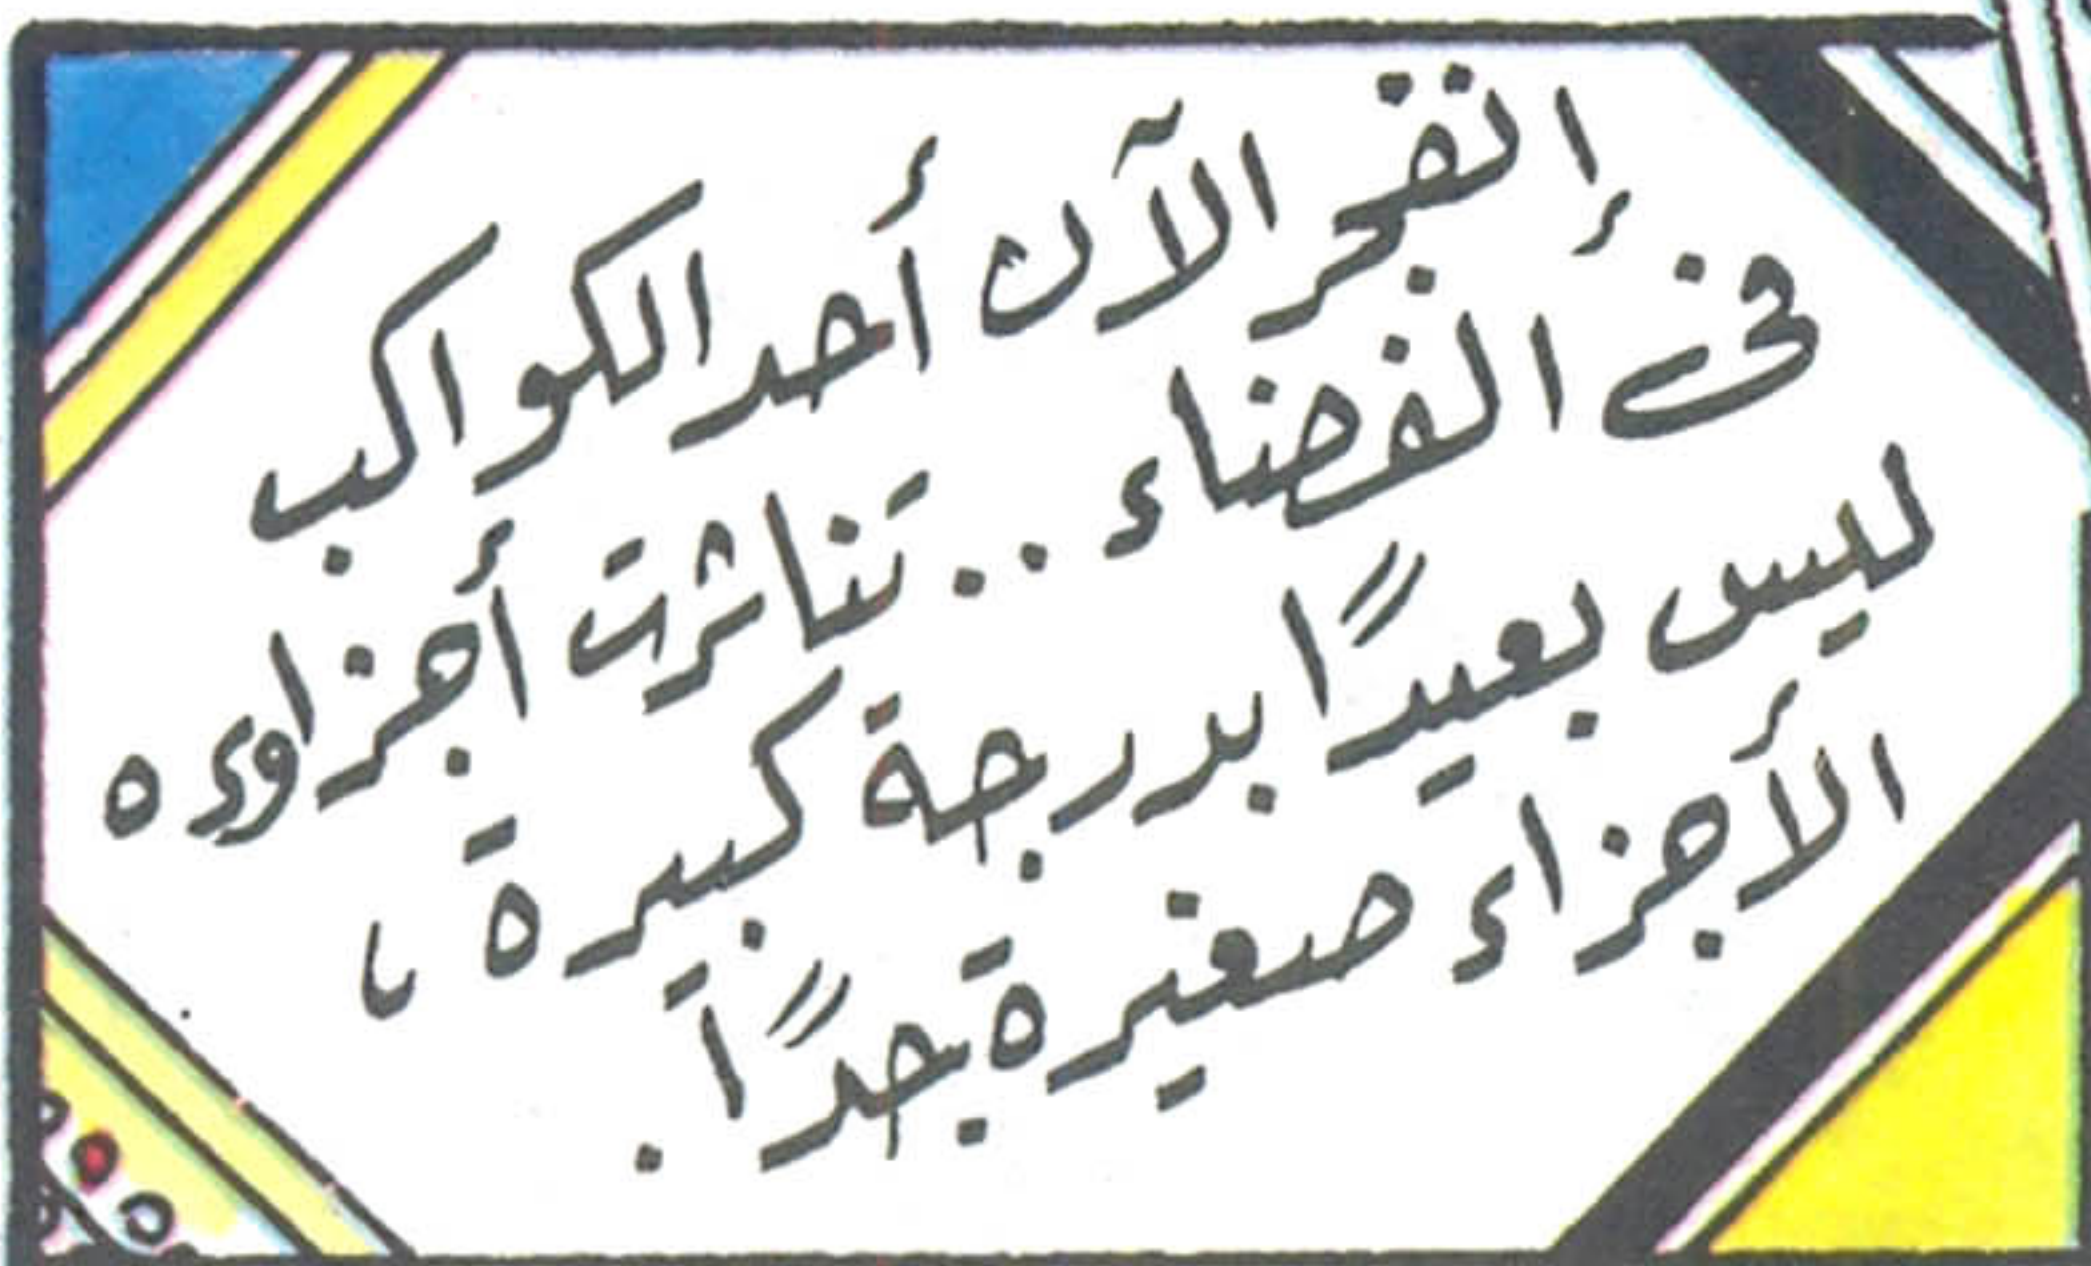 إنفجر الآن أحد الكواكب
فى الفضاء .. تناثرت أجزاوءه
ليس بعيدًا بدرجة كبيرة ،
الأجزاء صغيرة جدًا .